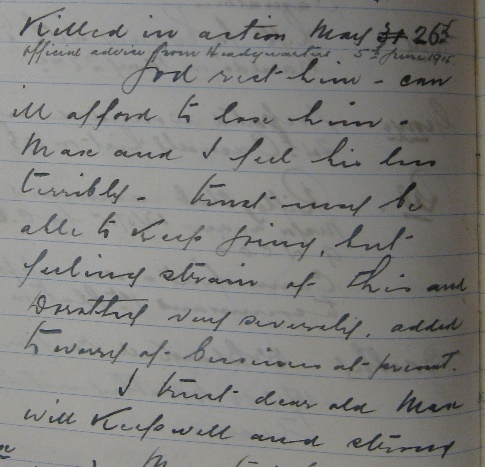 Killed in action May 26th
official advice from Headquarters 5th June 1915
God rest him - can
ill afford to lose him.
Max and I feel his loss
terribly - trust may be
able to keep going, but
feeling strain of this and
Dorothy very severely, added
to worry of business at present.
I trust dear old Max
will keep well and strong